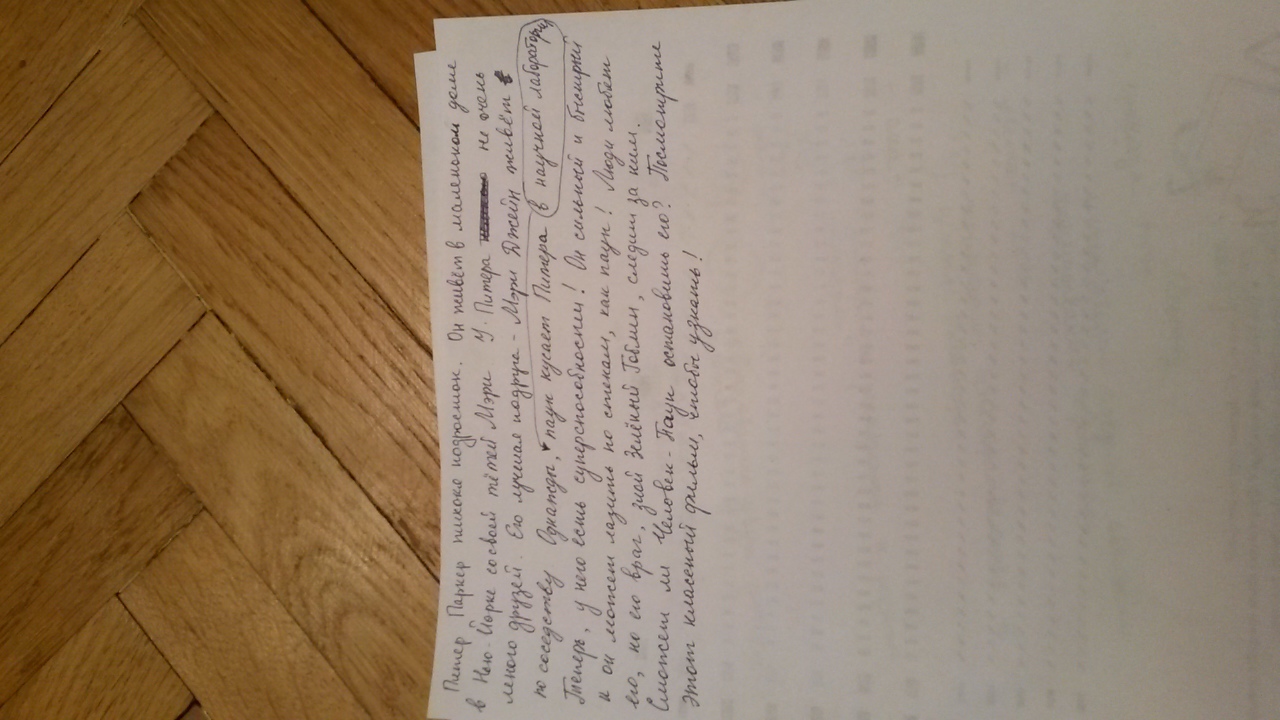 Питер Паркер тихоня подросток. Он живёт в маленьком доме
в Нью-Йорке со своей тётей Мэри. У Питера не очень
много друзей. Его лучшая подруга - Мэри Джейн живёт
по соседству Однажды, паук кусает Питера в научной лаборатории
Теперь, у него есть суперспособности! Он сильный и быстрый
и он может лазить по стенам, как паук! Люди любят
его, но его враг, злой Зелёный Гоблин, следит за ним.
Сможет ли Человек-Паук остановить его? Посмотрите
этот классный фильм, чтобы узнать!